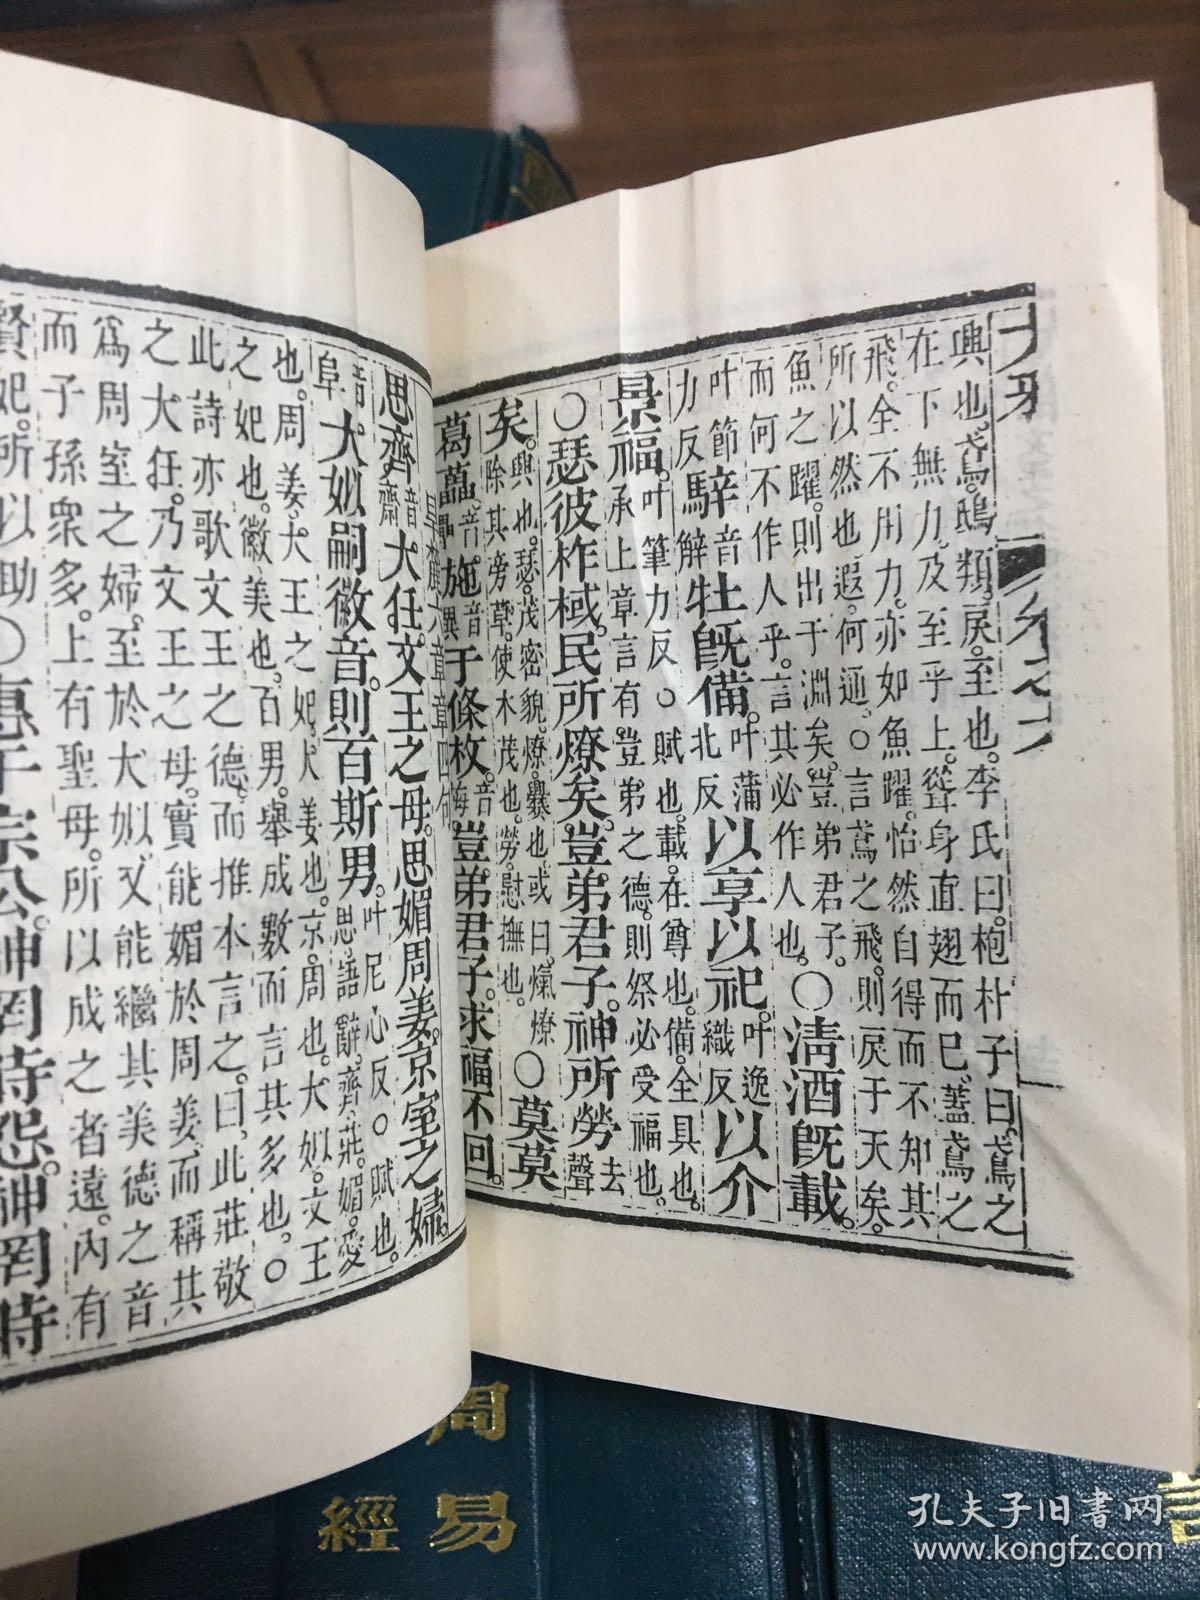 興也。鳶。鴟類。戾。至也。李氏曰。抱朴子曰。鳶之
在下無力。及至乎上。聳身直翅而巳。蓋鳶之
飛。全不用力。亦如魚躍。怡然自得而不知其
所以然也。遐。何通。○言鳶之飛。則戾于天矣。
魚之躍。則出于淵矣。豈弟君子。而何不作人乎。言其必作人也。○清酒既載。
叶節力反騂音解牡既備。叶蒲北反以享以祀。叶逸織反以介
景福。叶筆力反○賦也。載。在尊也。備。全具也。承上章言有豈弟之德。則祭必受福也。
○瑟彼柞棫。民所燎矣。豈弟君子。神所勞去聲
矣。興也。瑟。茂密貌。燎。爨也。或曰。熂燎除其旁草。使木茂也。勞。慰撫也。○莫莫
葛藟。音壘施音異于條枚。豈弟君子。求福不回。
旱麓六章章四句
思齊音齋大任。文王之母。思媚周姜。京室之婦。
音阜。大姒嗣徽音。則百斯男。叶尼心反○賦也。思。語辭。齊。莊。媚。愛
也。周姜。大王之妃。大姜也。京。周也。大姒。文王
之妃也。徽。美也。百男。舉成數而言其多也。○
此詩亦歌文王之德。而推本言之。曰。此莊敬
之大任。乃文王之母。實能媚於周姜。而稱其
爲周室之婦。至於大姒。又能繼其美德之音
而子孫衆多。上有聖母。所以成之者遠。內有
賢妃。所以助○惠于宗公。神罔時怨。神罔時
周易
經
孔夫子旧书网
www.kongfz.com